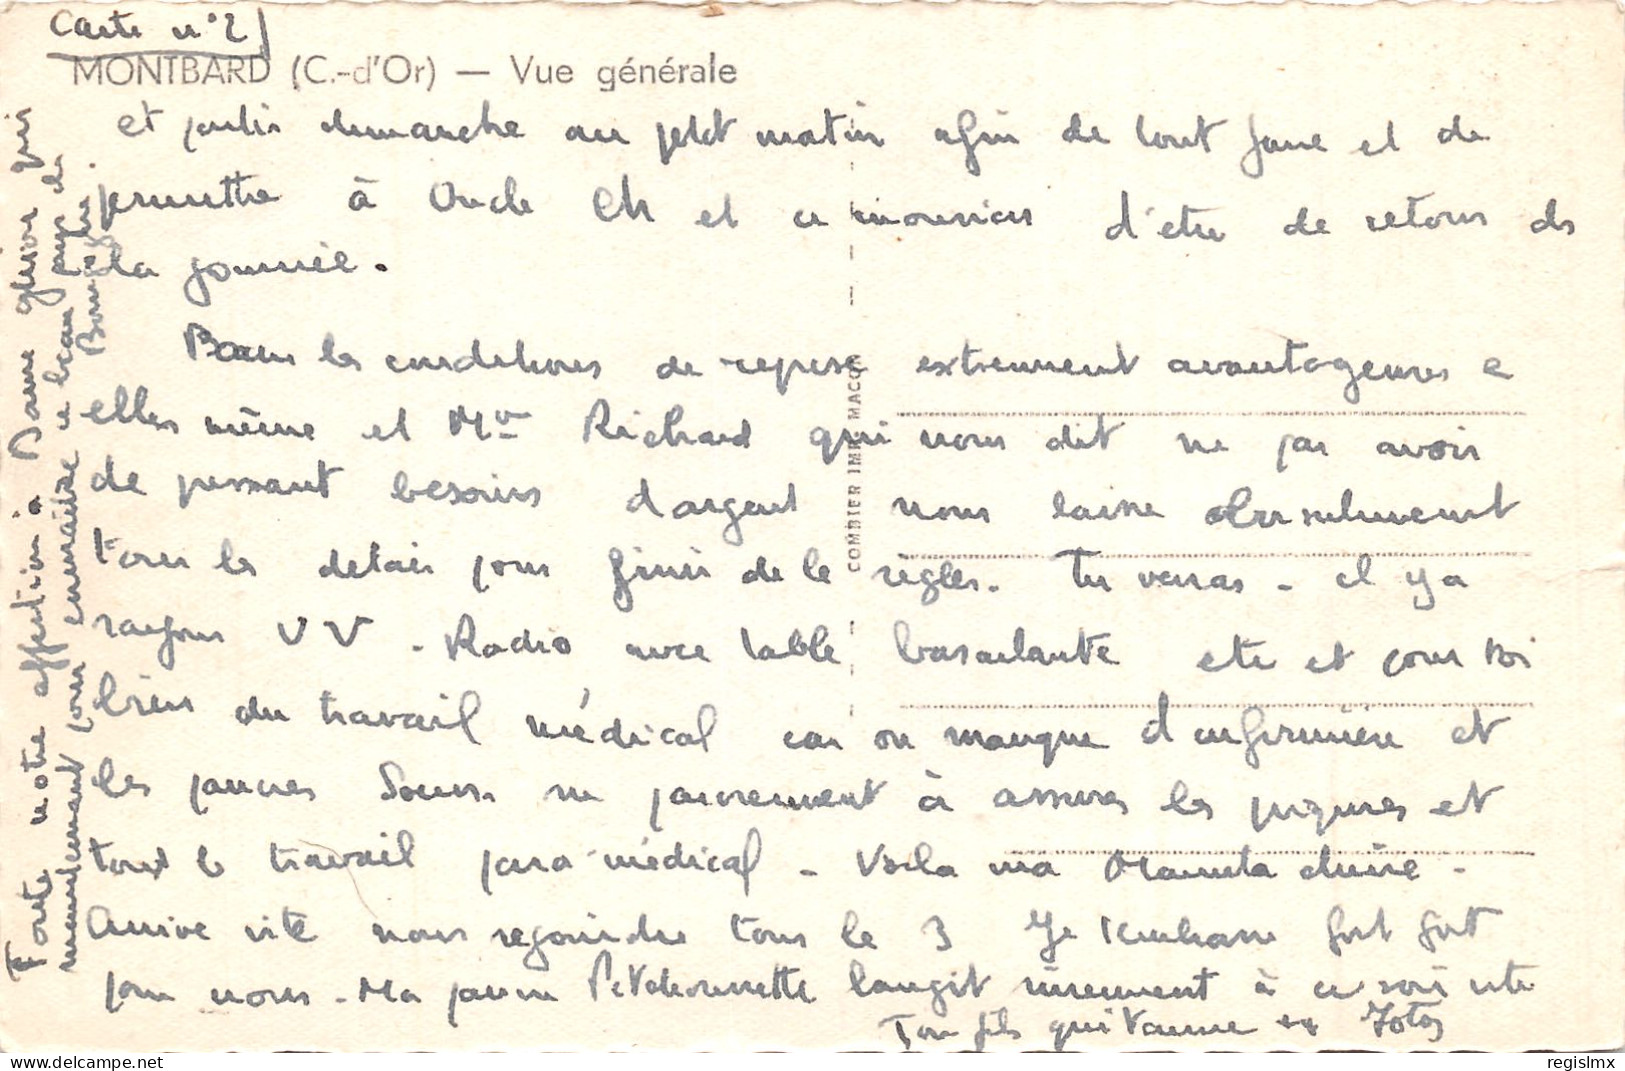 Carte n°2
MONTBARD (C.-d'Or) — Vue générale
et partir dimanche au petit matin afin de tout faire et de
permettre à Oncle Ch et ce monsieur d'être de retour ds
la journée.
les conditions de repose extremement avantageuses
elles même et Mr Richard qui nous dit ne pas avoir
de pressant besoins d'argent nous laisse absolument
tous les détails pour finir de le régler. Tu verras - il y a
rayons U V - Radio avec table basculante etc et pour toi
bien du travail médical car on manque d'infirmière et
les pauvres Soeurs ne parviennent à assurer les piqures et
tout le travail para-médical - Voila ma Maman chérie -
Arrive vite nous rejoindre tous le 3 Je t'embrasse fort fort
pour nous - Ma languit vivement à ce soir vite
Ton fils qui t'aime ++ Totoz
Toute notre affection à Dame qui
pour ce beau pays de
COMBIER IMP. MACON
delcampe.net
regislmx